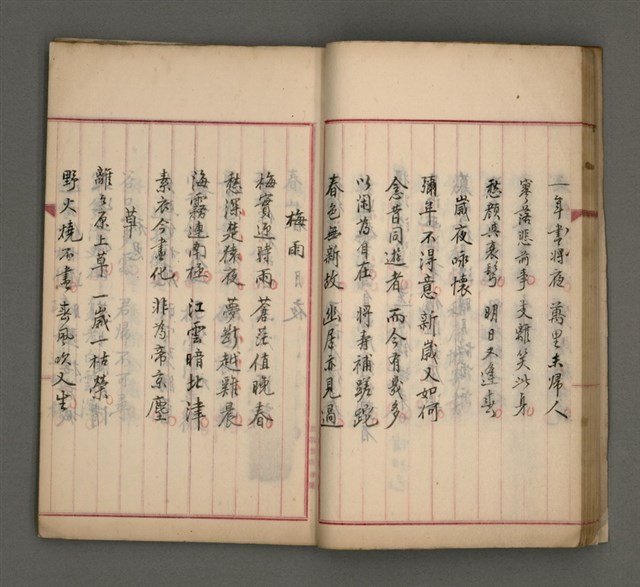 一年書將夜 萬里未歸人
寥落悲前事 支離笑此身
愁顏與衰鬢 明日又逢春
歲夜咏懷
彌年不得意 新歲又如何
念昔同遊者 而今有幾多
以閑為自在 將壽補蹉跎
春色無新故 幽居亦見過
梅雨
梅實迎時雨 蒼茫值晚春
愁深楚猿夜 夢斷越雞晨
海霧連南極 江雲暗北津
素衣今盡化 非為帝京塵
草
離〻原上草 一歲一枯榮
野火燒不盡 春風吹又生